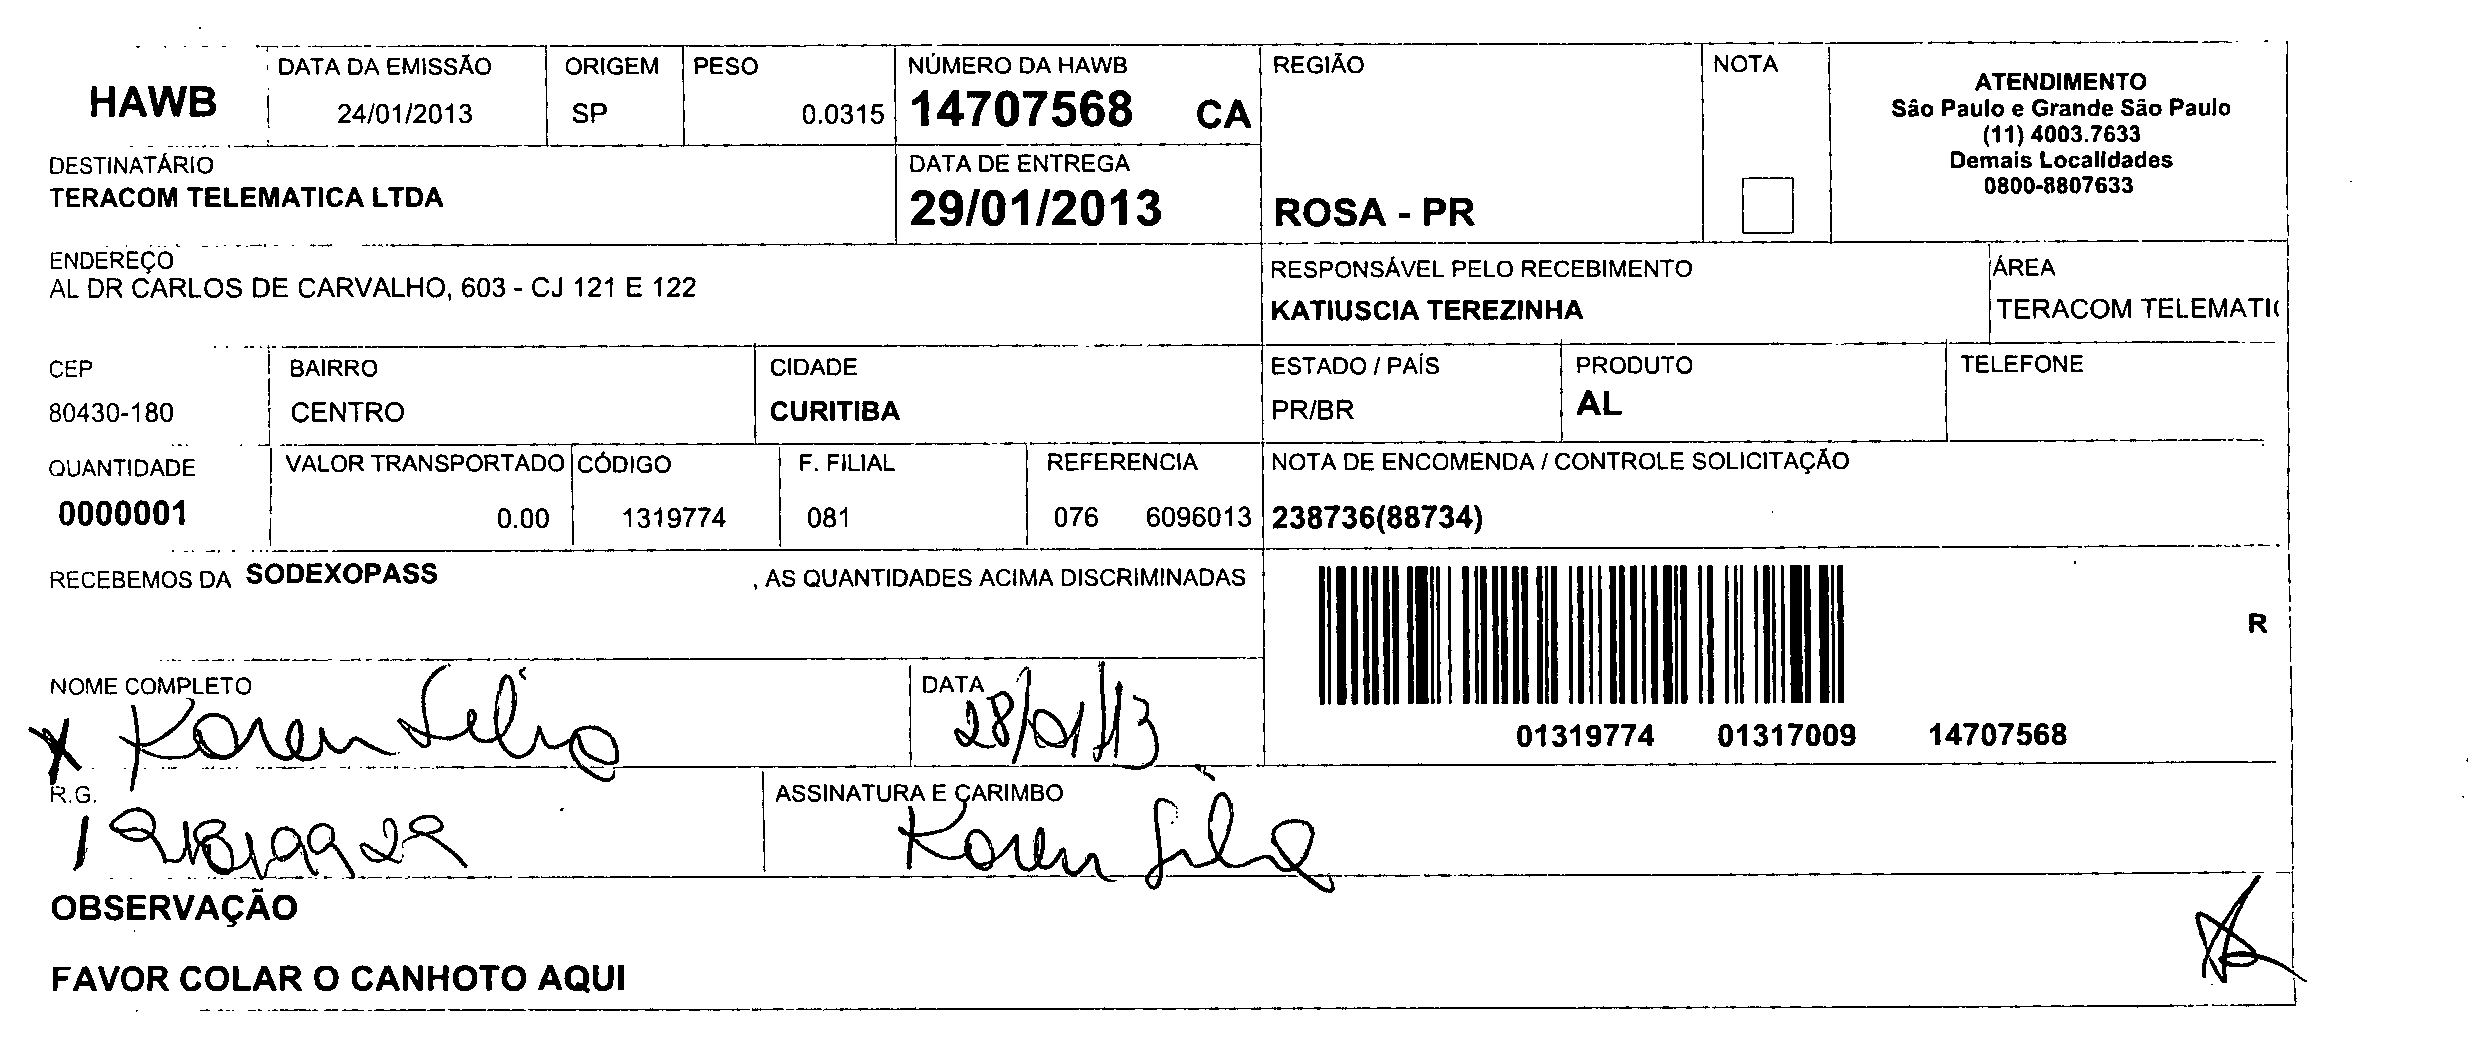 HAWB
DATA DA EMISSÃO
24/01/2013
ORIGEM
SP
PESO
0.0315
NÚMERO DA HAWB
14707568 CA
REGIÃO
ROSA - PR
NOTA
ATENDIMENTO
São Paulo e Grande São Paulo
(11) 4003.7633
Demais Localidades
0800-8807633
DESTINATÁRIO
TERACOM TELEMATICA LTDA
DATA DE ENTREGA
29/01/2013
ENDEREÇO
AL DR CARLOS DE CARVALHO, 603 - CJ 121 E 122
RESPONSÁVEL PELO RECEBIMENTO
KATIUSCIA TEREZINHA
ÁREA
TERACOM TELEMATI
CEP
80430-180
BAIRRO
CENTRO
CIDADE
CURITIBA
ESTADO / PAÍS
PR/BR
PRODUTO
AL
TELEFONE
QUANTIDADE
0000001
VALOR TRANSPORTADO
0.00
CÓDIGO
1319774
F. FILIAL
081
REFERENCIA
076 6096013
NOTA DE ENCOMENDA / CONTROLE SOLICITAÇÃO
238736(88734)
RECEBEMOS DA SODEXOPASS , AS QUANTIDADES ACIMA DISCRIMINADAS
R
01319774 01317009 14707568
NOME COMPLETO
X Karen Silva
DATA
28/01/13
R.G.
ASSINATURA E CARIMBO
Karen Silva
OBSERVAÇÃO
FAVOR COLAR O CANHOTO AQUI